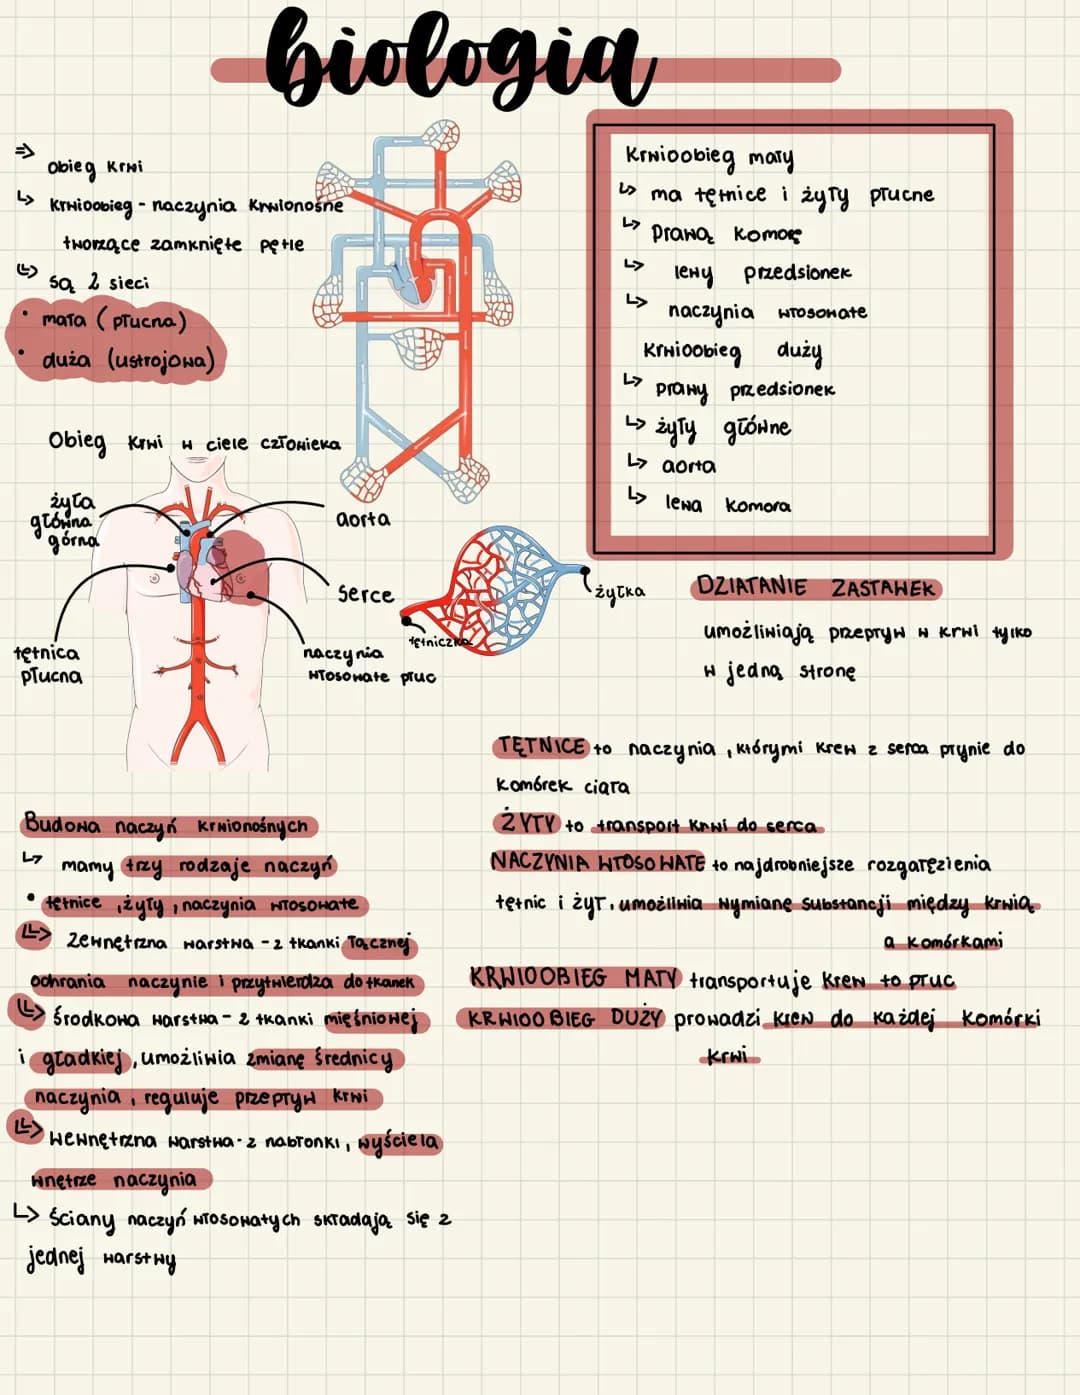 biologia
⇒ Obieg krwi
↳ krwioobieg - naczynia krwionośne
tworzące zamknięte pętle
↳ są 2 sieci
• mała (płucna)
• duża (ustrojowa)
Krwioobieg mały
↳ ma tętnice i żyły płucne
↳ prawą komorę
↳ lewy przedsionek
↳ naczynia włosowate
krwioobieg duży
↳ prawy przedsionek
↳ żyły główne
↳ aorta
↳ lewa komora
Obieg krwi w ciele człowieka
żyła
główna
górna
aorta
serce
tętnica
płucna
naczynia
włosowate płuc
tętniczka
żyłka
DZIAŁANIE ZASTAWEK
umożliwiają przepływ w krwi tylko
w jedną stronę
TĘTNICE to naczynia, którymi krew z serca płynie do
komórek ciała
ŻYŁY to transport krwi do serca
NACZYNIA WŁOSOWATE to najdrobniejsze rozgałęzienia
tętnic i żył, umożliwia wymianę substancji między krwią
a komórkami
KRWIOOBIEG MAŁY transportuje krew to płuc
KRWIOOBIEG DUŻY prowadzi krew do każdej komórki
krwi
Budowa naczyń krwionośnych
↳ mamy trzy rodzaje naczyń
• tętnice, żyły, naczynia włosowate
↳ Zewnętrzna warstwa - z tkanki łącznej
ochrania naczynie i przytwierdza do tkanek
↳ środkowa warstwa - z tkanki mięśniowej
i gładkiej, umożliwia zmianę średnicy
naczynia, reguluje przepływ krwi
↳ wewnętrzna warstwa - z nabłonki, wyściela
wnętrze naczynia
↳ ściany naczyń włosowatych składają się z
jednej warstwy